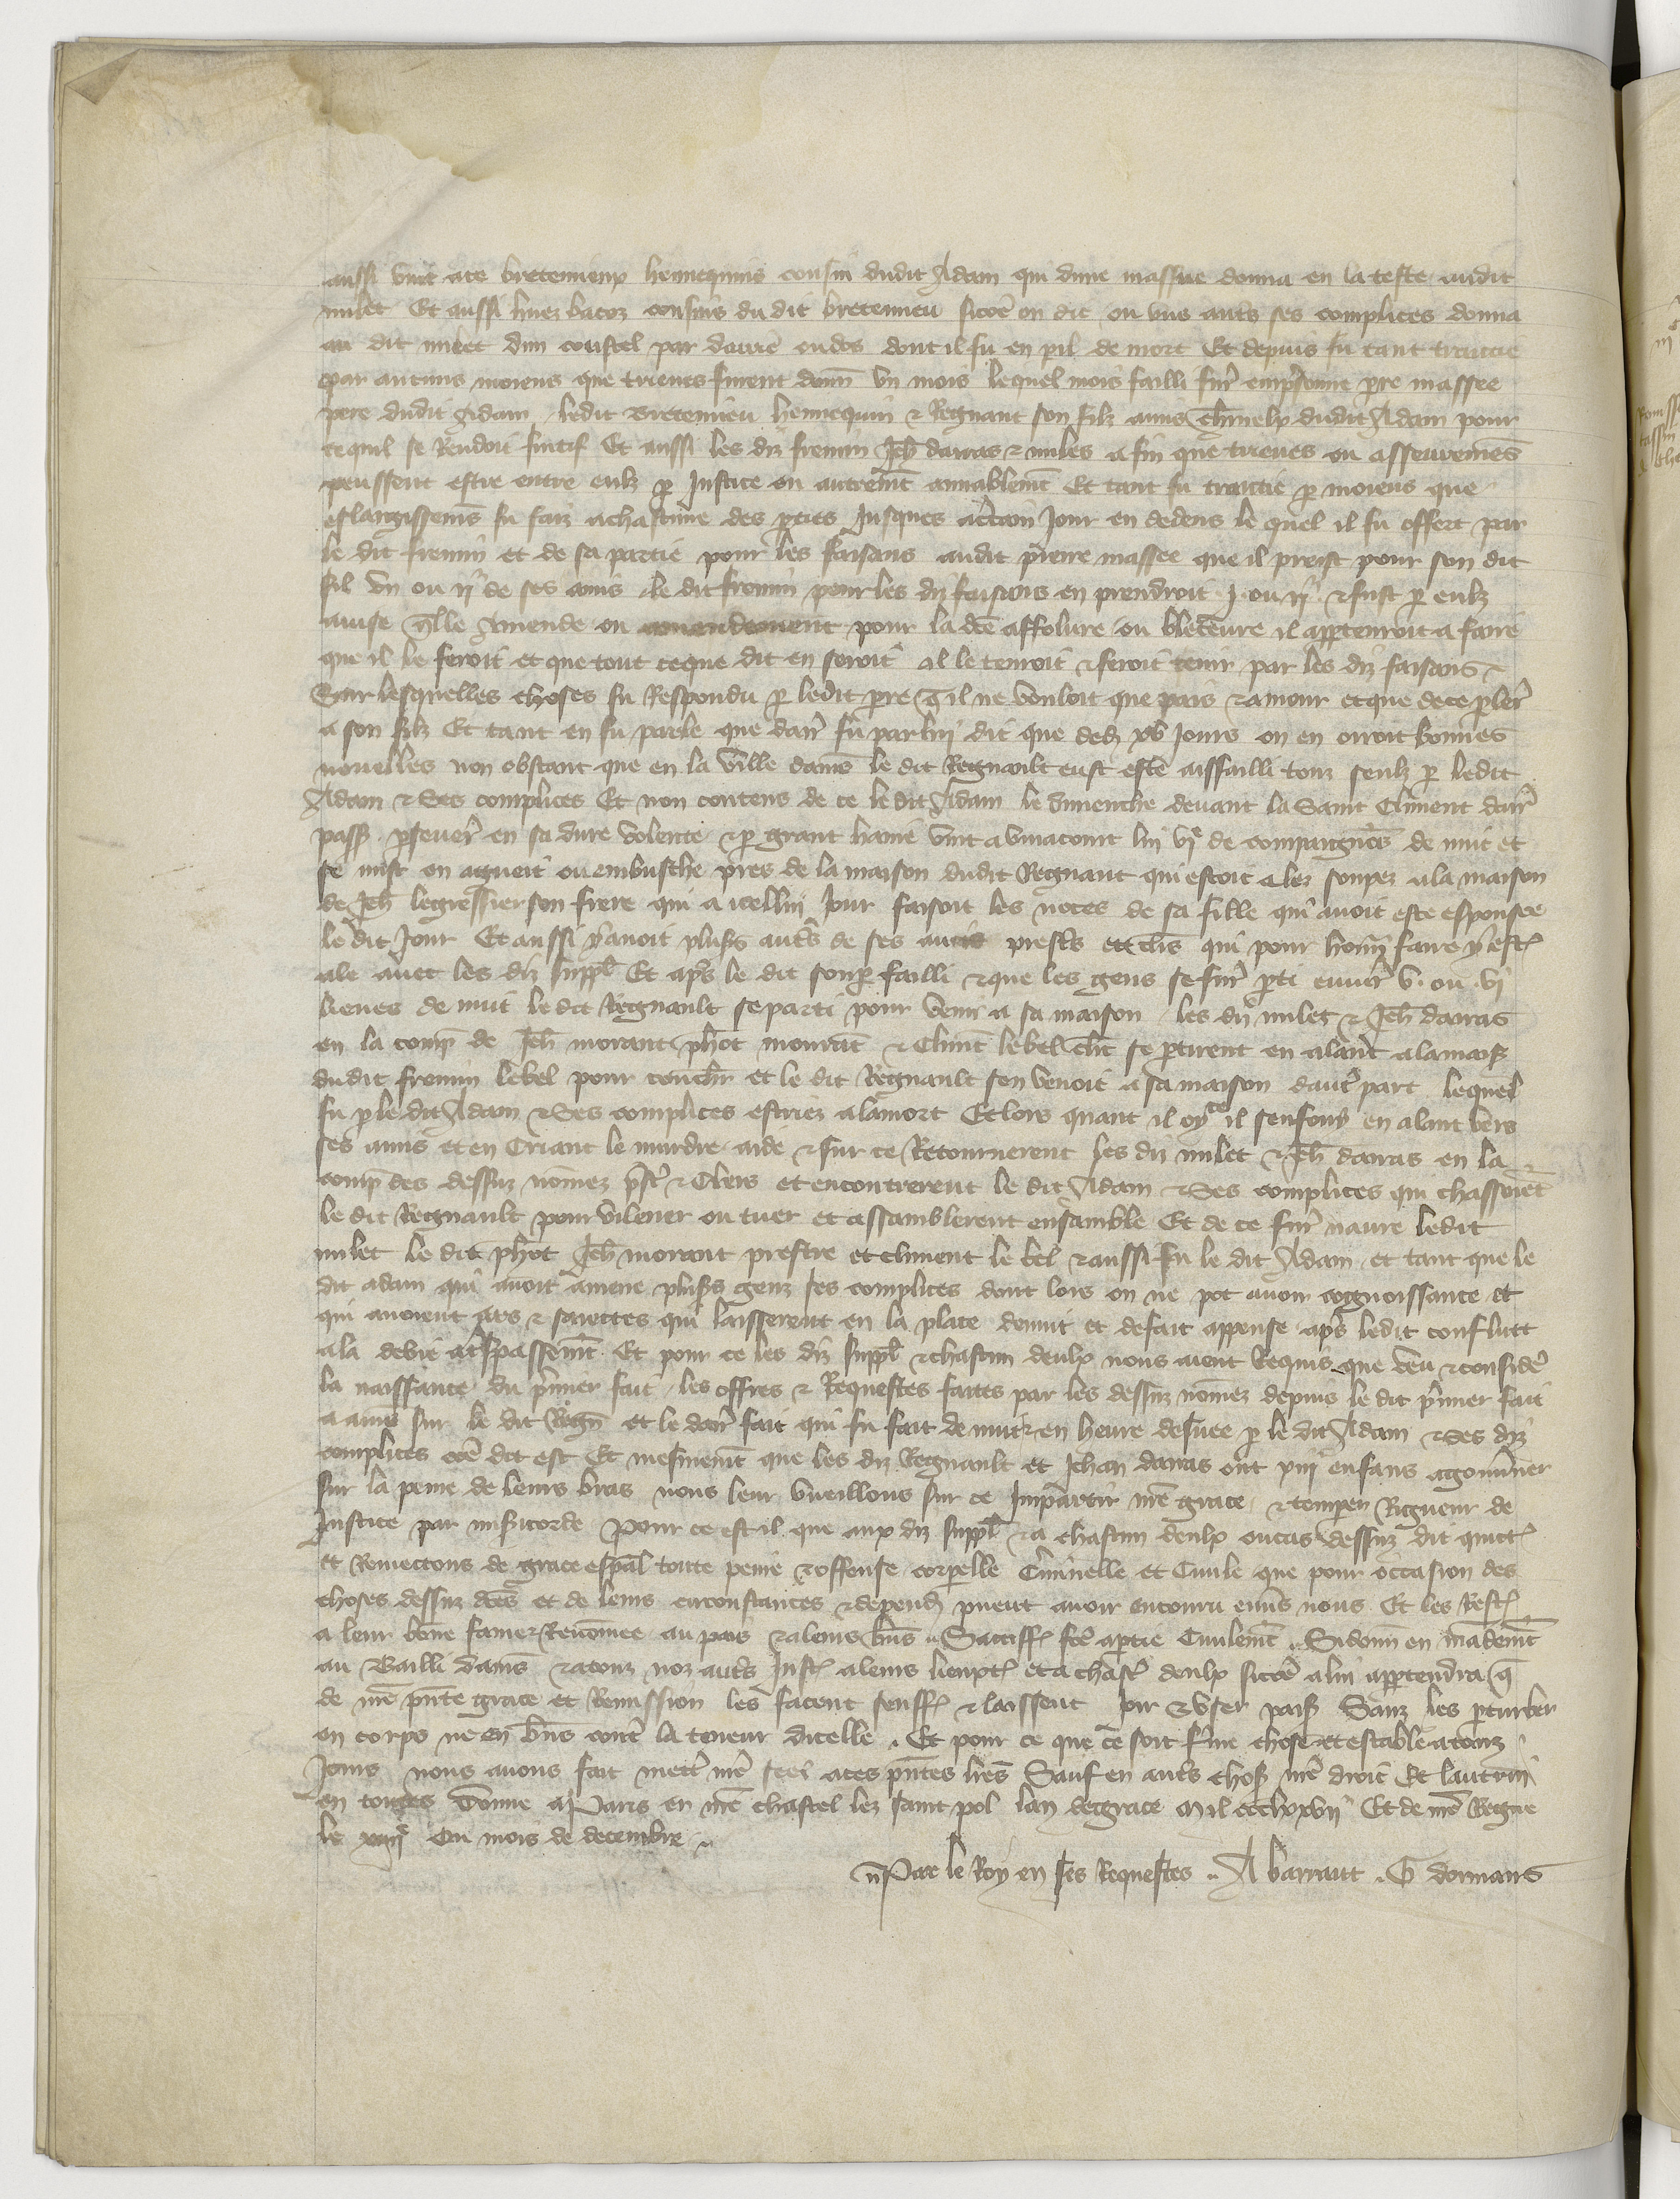 aussi vint a ce bretemieux hennequins cousin dudit Adam qui dune massue donna en la teste audit
milet Et aussi huez bacoz cousins du dit bretemieu sicõe on dit ou uns auts ses complices donna
au dit milet dun coustel par darrie ou dos dont il fu en pil de mort Et depuis fu tant traictie
par aucuns moiens que trieues furent donn un mois lequel mois failli furt emprisonne pre massee
pere dudit Adam ledit Bretemieu hennequin & Regnaut son filz amis charnelx dudit Adam pour
ce quil se Rendoit fuitif Et aussi les diz fremin Jeh dauras & miles afin que trieues ou asseuremens
peussent estre entre eulz p Justice ou autremt amiablemt Et tant fu traictie p moiens que
eslargissems fu faiz a chascune des pties Jusques a ctain Jour en dedens le quel il fu offert par
le dit fremin et de sa partie pour les faisans audit pierre massee que il preist pour son dit
fil un ou ij de ses amis le dit fremin pour les diz faisans en prendroit j ou ij & fust p eulz
auise qlle Amende ou amendement pour la dce affolure ou bleceure il apptenroit a faire
que il le feroit et que tout ceque dit en seroit il le tenroit & feroit tenir par les diz faisans
Sur lesquelles choses fu Respondu p ledit pere q il ne vouloit que pais & amour et que de ce pler
a son filz Et tant en fu parle que darr fu par luy dit que dedz xv Jours on en orroit bonnes
nouelles non obstant que en la ville damis le dit Regnault eust este assailli touz seulz p ledit
Adam & Ses complices Et non contens de ce le dit Adam le dimenche deuant la Saint Climent darr
pass pseuer en sa dure volente & p grant haine vint a vinacourt lui vj de compaignos de nuit et
se mist en agueit ou embusche pres de la maison dudit Regnaut qui estoit alez souper a la maison
de Jeh legressier son frere qui a icelluy Jour faisoit les noces de sa fille qui auoit este espousee
le dit Jour Et aussi y auoit pluss auts de ses amis prests et clers qui pour honn faire y est
ale auec les diz suppl Et aps le dit soup failli & que les gens se furt pti enuir v. ou vj
lieues de nuit le dit Regnault se parti pour venir a sa maison les diz milet & Jeh dauras
en la comp de Jeh morant phot mourat & Climt lebel clerc se ptirent en alant a la mais
dudit fremin lebel pour couchr et le dit Regnault sen venoit a sa maison daut part lequel
fu p le dit Adam & Ses complices escriez a la mort Et lors quant il oy ce il senfouy en alant vers
ses amis et en Criant le murdre aide & sur ce Retournerent les diz milet & Jeh dauras en la
comp des dessuz nommez pst & Clers et encontrerent le dit Adam & Ses complices qui chassoiet
le dit Regnault pour vilener ou tuer et assamblerent ensamble Et de ce furt naure ledit
milet le dit phot Jeh morant prestre et climent le bel & aussi fu le dit Adam et tant que le
dit adam qui auoit amene pluss genz ses complices dont lors on ne pot auoir cognoissance et
qui auoient arcs & saiettes qui laisserent en la place de nuit et de fait appense aps ledit conflict
ala de vie a trespassemt Et pour ce les diz suppl & chascun deulx nous aient Requis que veu & consider
la naissance du pmier fait les offres & Requestes faites par les dessuz nommez depuis le dit pmier fait
auenu sur le dit Regn et le darr fait qui fu fait de nuit & en heure desuee p le dit Adam & Ses diz
complices coe dit est Et mesmemt que les diz Regnault et Jehan dauras ont viij enfans a gouuner
sur la peine de leurs bras nous leur vueillons sur ce Impartir nre grace & temper Rigueur de
Justice par misicorde Pour ce est il que aux diz suppl & a chascun deulx ou cas dessuz dit quictt
et Remectons de grace espal toute peine & offense corpelle Criminelle et Ciuile que pour occasion des
choses dessuz dces et de leurs circonstances & depend pueut auoir encouru enuers nous Et les Restt
a leur bone fame & Renommee au pais & a leurs bns Satiff fce a ptie Ciuilemt Si donn en mademt
au Bailli damis & a touz noz auts Just a leurs lieuxt et a chast deulx sicoe a luy apptendra q
de nre pnte grace et Remission les facent seuff & laissent joir & user paisi Sanz les pturber
en corps ne en bns contr la teneur dicelle Et pour ce que ce soit ferme chose et estable a touz
Jours nous auons fait mettr nre seel a ces pntes lres Sauf en auts chos nre droit Et lautruy
en toutes Donne a Paris en nre chastel lez saint pol lan de grace Mil ccclxxvij Et de nre Regne
le xiiije Ou mois de decembre
Par le Roy en ses Requestes A barraut G dormans